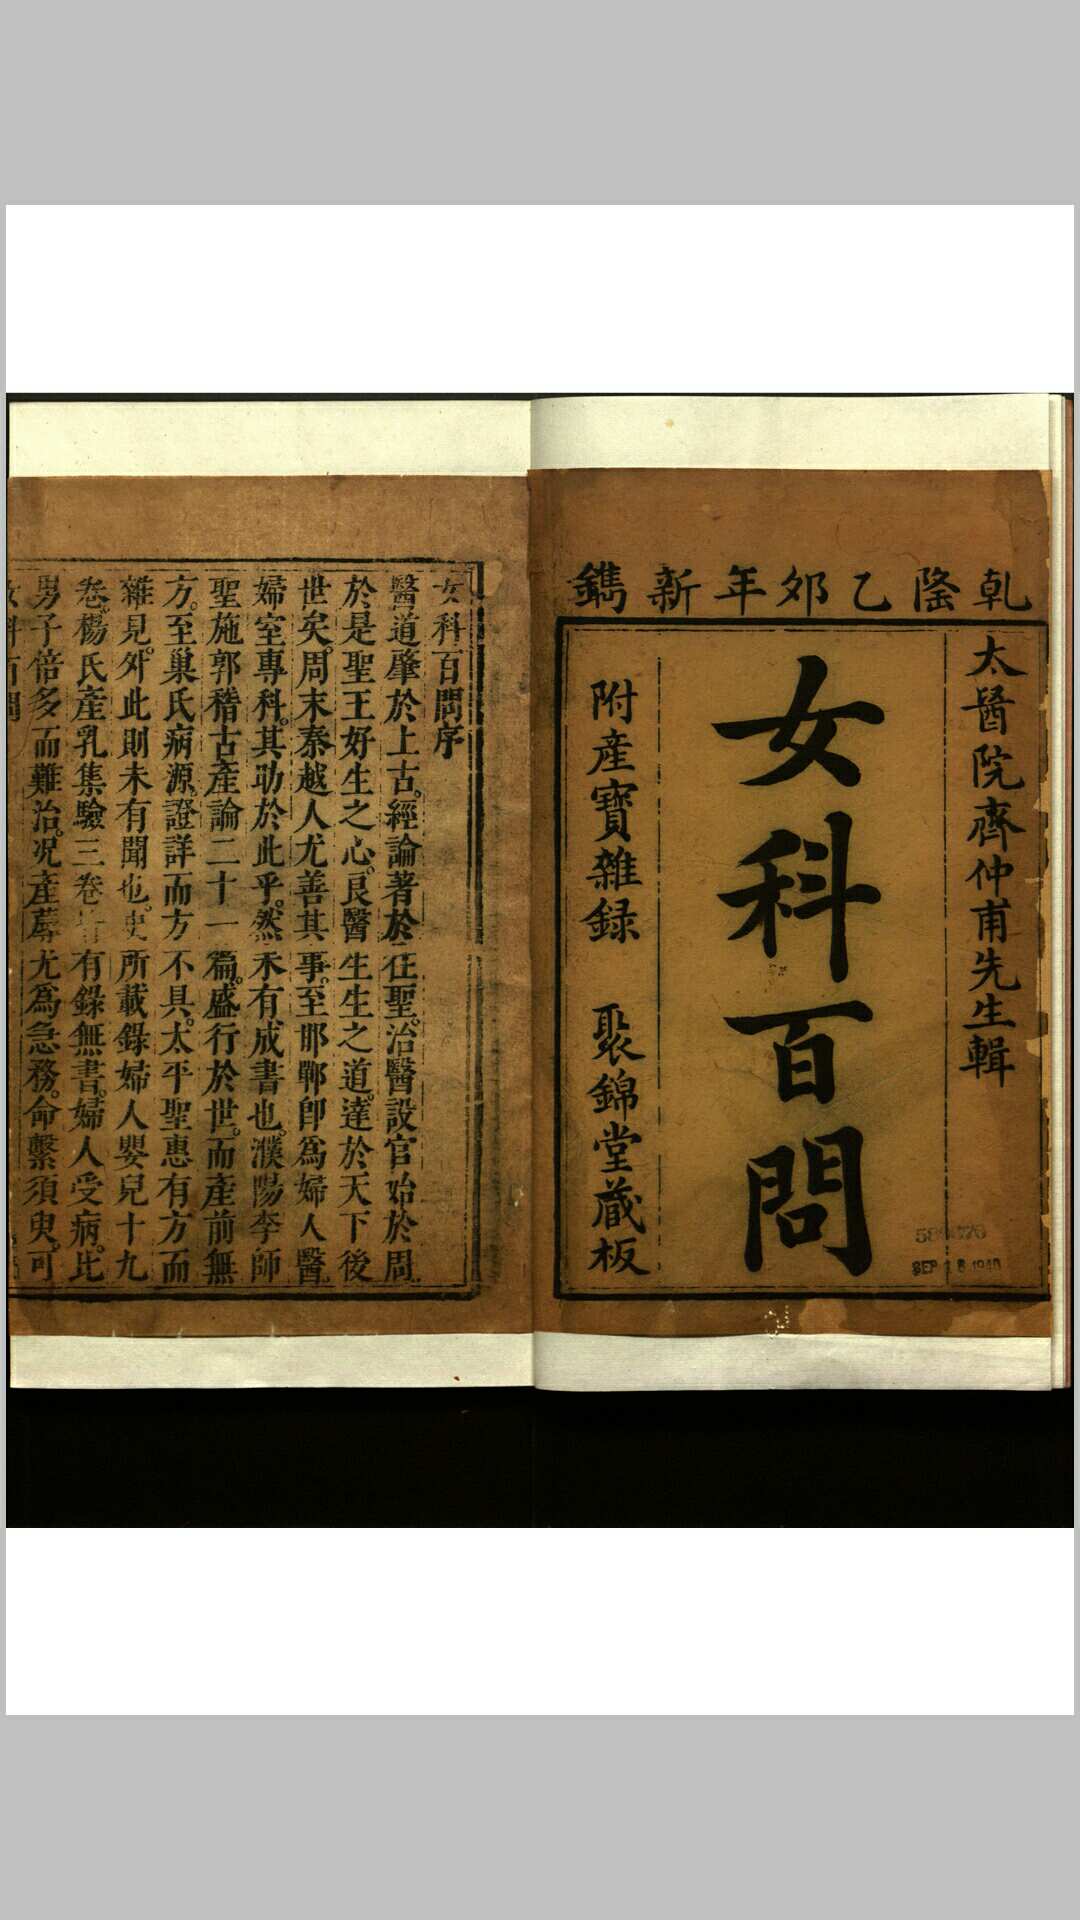 乾隆乙夘年新鐫
太醫院齊仲甫先生輯
女科百問
附產寶雜録　聚錦堂藏板
SEP 18 1940
女科百問序
醫道肇於上古。經論著於往聖。治醫設官始於周
於是聖王好生之心。良醫生生之道。達於天下後
世矣。周末秦越人尤善其事。至邯鄲卽爲婦人醫
婦室專科。其助於此乎。然未有成書也。濮陽李師
聖施郭稽古產論二十一篇。盛行於世。而產前無
方。至巢氏病源。證詳而方不具。太平聖惠有方而
雜見。外此則未有聞也。史所載錄婦人嬰兒十九
卷。楊氏產乳集驗三卷皆有錄無書。婦人受病。比
男子倍多而難治。况產蓐尤爲急務。命繫須臾。可
女科百問